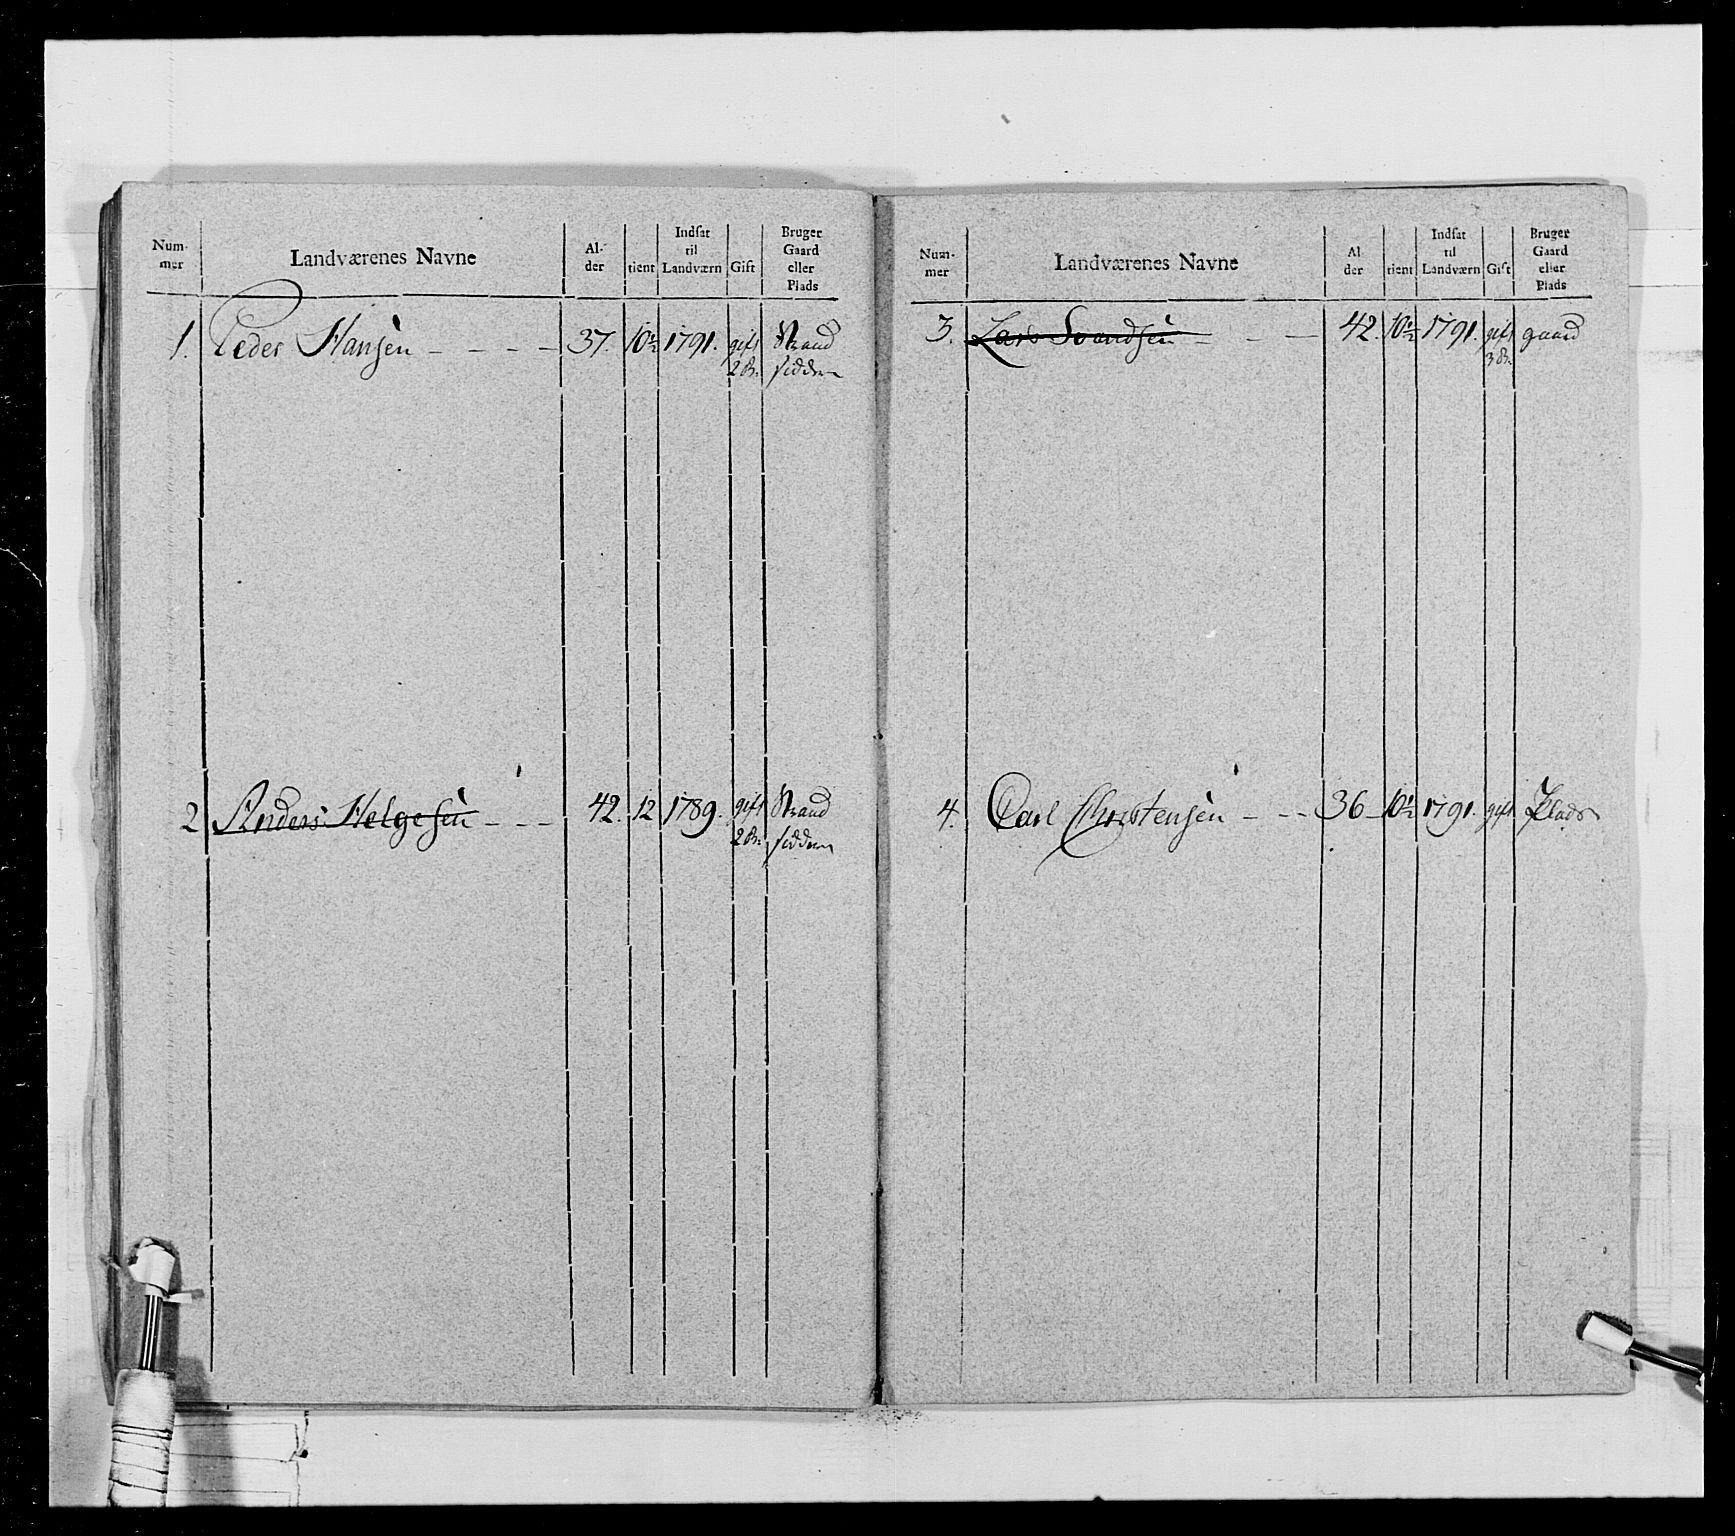 Num-
mer
Landværenes Navne
Al-
der
tient
Indsat
til
Landværn
Gift
Bruger
Gaard
eller
Plads
1. Peder Hansen - - - - 37. 10½ 1791. gift Strand
2 Br. sidder
2 Anders Helgesen - - - 42. 12 1789. gift Strand
2 Br. sidder
Num-
mer
Landværenes Navne
Al
der
tient
Indsat
til
Landværn
Gift
Bruger
Gaard
eller
Plads
3. Lars Svendsen - - - 42. 10½ 1791. gift gaard
3 Br.
4. Carl Christensen - - - 36 - 10½ 1791. gift Plads